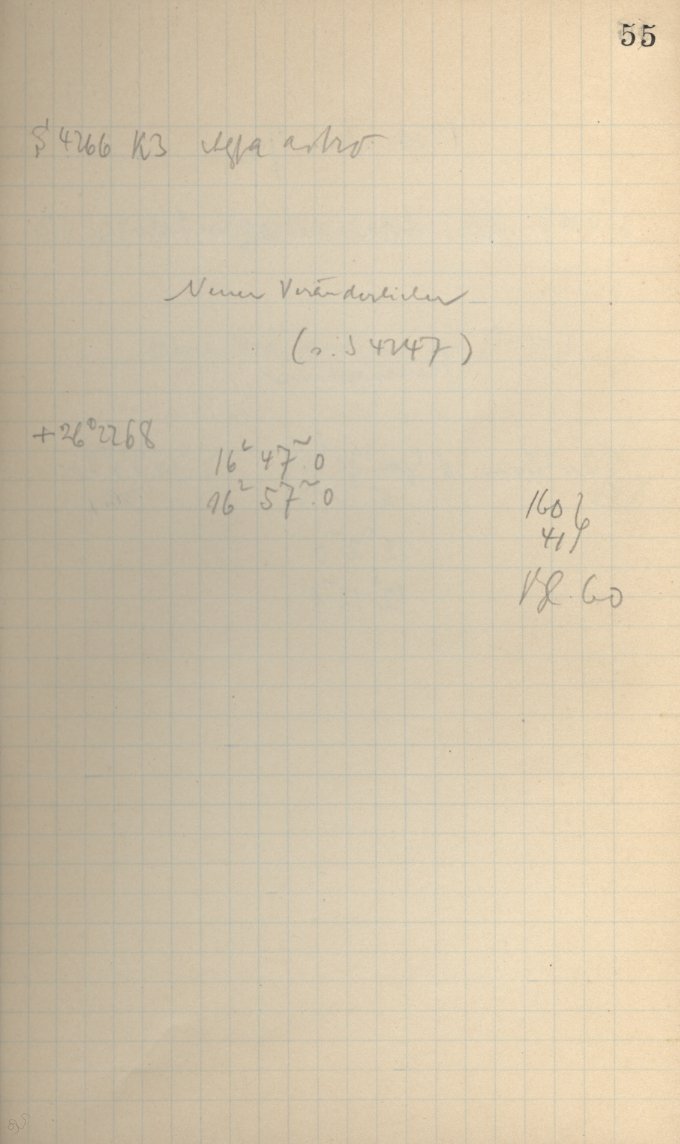 55
S 4266 K3 Agfa astro
Neuer Veränderlicher
(s. S 4247)
+26°2268
16ʰ 47ᵐ.0
16ʰ 57ᵐ.0
160
41
Vgl. 60